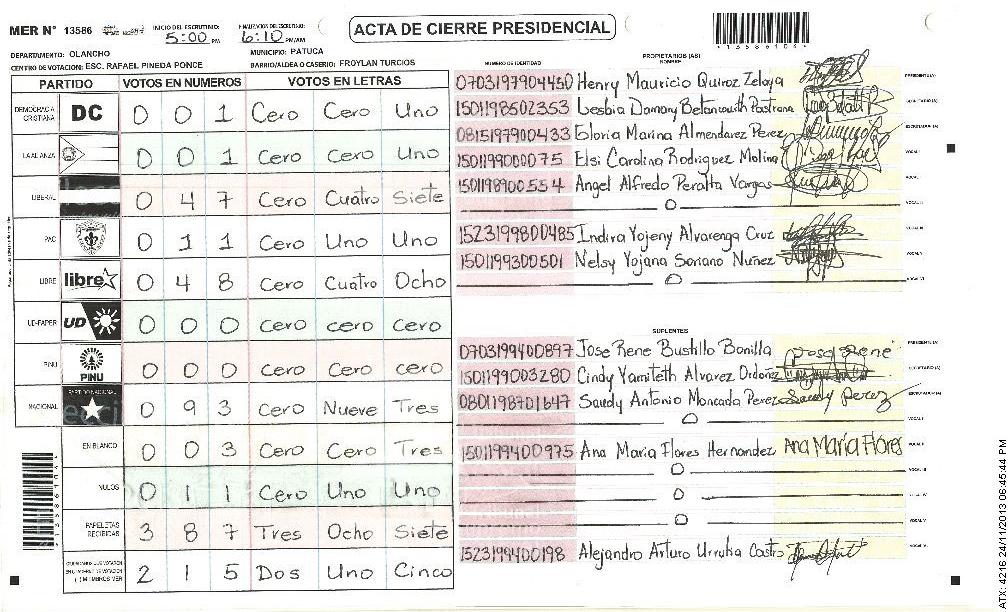 MER N° 13586
INICIO DEL ESCRUTINIO: 5:00 PM
FINALIZACION DEL ESCRUTINIO: 6:10 PM/AM
ACTA DE CIERRE PRESIDENCIAL
DEPARTAMENTO: OLANCHO
MUNICIPIO: PATUCA
CENTRO DE VOTACION: ESC. RAFAEL PINEDA PONCE
BARRIO/ALDEA O CASERIO: FROYLAN TURCIOS
PARTIDO VOTOS EN NUMEROS VOTOS EN LETRAS
DEMOCRACIA CRISTIANA DC 0 0 1 Cero Cero Uno
LA ALIANZA 0 0 1 Cero Cero Uno
LIBERAL 0 4 7 Cero Cuatro Siete
PAC 0 1 1 Cero Uno Uno
LIBRE libre 0 4 8 Cero Cuatro Ocho
UD-FAPER UD 0 0 0 Cero cero Cero
PINU PINU 0 0 0 Cero Cero cero
NACIONAL PARTIDO NACIONAL 0 9 3 Cero Nueve Tres
EN BLANCO 0 0 3 Cero Cero Tres
NULOS 0 1 1 Cero Uno Uno
PAPELETAS RECIBIDAS 3 8 7 Tres Ocho Siete
2 1 5 Dos Uno Cinco
NUMERO DE IDENTIDAD
PROPIETARIOS (AS)
NOMBRE
0703197904450 Henry Mauricio Quiroz Zelaya PRESIDENTE(A)
1501198502353 Lesbia Damary Betancourth Pastrana SECRETARIO (A)
0815197900433 Gloria Marina Almendarez Perez ESCRUTADOR (A)
1501199000075 Elsi Carolina Rodriguez Molina VOCAL I
1501198900554 Angel Alfredo Peralta Vargas
0 VOCAL III
1523199800485 Indira Yojeny Alvarenga Cruz
1501199300501 Nelsy Yojana Soriano Nuñez VOCAL V
0 VOCAL VI
SUPLENTES
0703199400897 Jose Rene Bustillo Bonilla Jose Rene PRESIDENTE (A)
1501199003280 Cindy Yamileth Alvarez Ordoñez SECRETARIO (A)
0801198701647 Saudy Antonio Moncada Perez Saudy perez ESCRUTADOR (A)
0 VOCAL I
1501199400975 Ana Maria Flores Hernandez Ana María Flores VOCAL II
0 VOCAL III
0 VOCAL IV
0 VOCAL V
1523199400198 Alejandro Arturo Urrutia Castro VOCAL VI
ATX: 4216 24/11/2013 06:45:44 PM